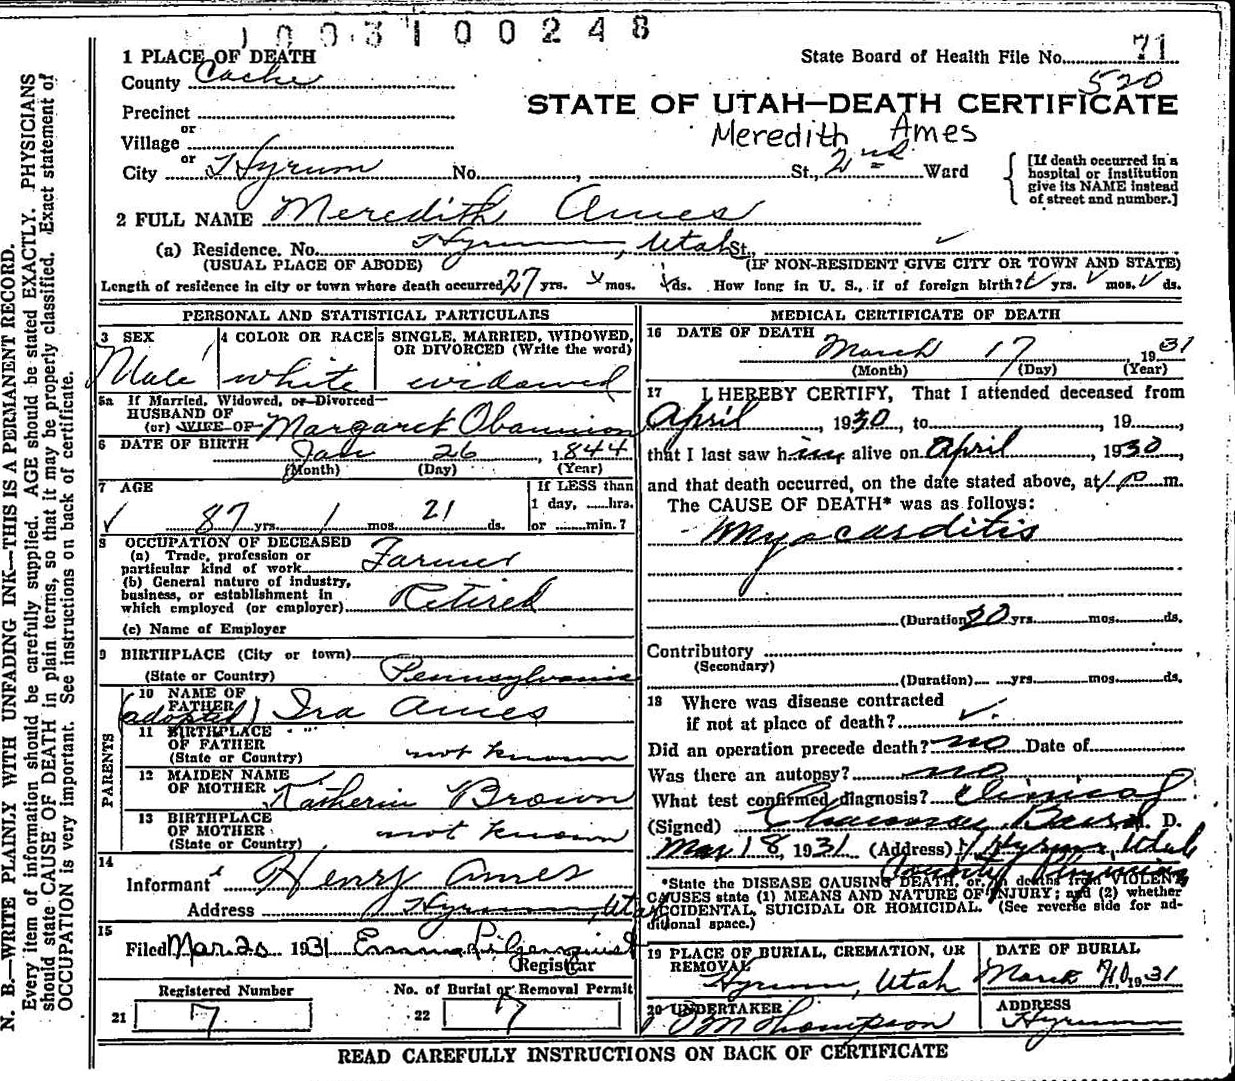 1003100248
1 PLACE OF DEATH
State Board of Health File No. 71
County Cache
520
STATE OF UTAH—DEATH CERTIFICATE
Precinct
or
Meredith Ames
Village
or
City Hyrum No. St., 2nd Ward
[If death occurred in a hospital or institution give its NAME instead of street and number.]
2 FULL NAME Meredith Ames
(a) Residence. No. Hyrum, Utah St.
(USUAL PLACE OF ABODE) (IF NON-RESIDENT GIVE CITY OR TOWN AND STATE)
Length of residence in city or town where death occurred 27 yrs. mos. ds. How long in U. S., if of foreign birth? yrs. mos. ds.
PERSONAL AND STATISTICAL PARTICULARS
3 SEX 4 COLOR OR RACE 5 SINGLE, MARRIED, WIDOWED, OR DIVORCED (Write the word)
Male white widowed
5a If Married, Widowed, or Divorced
HUSBAND OF
(or) WIFE OF Margaret Obannion
6 DATE OF BIRTH Jan 26, 1844
(Month) (Day) (Year)
7 AGE If LESS than
1 day, hrs.
87 yrs. 1 mos. 21 ds. or min. ?
8 OCCUPATION OF DECEASED
(a) Trade, profession or
particular kind of work Farmer
(b) General nature of industry,
business, or establishment in
which employed (or employer) Retired
(c) Name of Employer
9 BIRTHPLACE (City or town)
(State or Country) Pennsylvania
PARENTS
10 NAME OF
FATHER
(adopted) Ira Ames
11 BIRTHPLACE
OF FATHER
(State or Country) not known
12 MAIDEN NAME
OF MOTHER Katherin Brown
13 BIRTHPLACE
OF MOTHER
(State or Country) not known
14
Informant Henry Ames
Address Hyrum, Utah
15
Filed Mar 20 1931 Emma
Registrar
Registered Number No. of Burial or Removal Permit
21 7 22 7
MEDICAL CERTIFICATE OF DEATH
16 DATE OF DEATH
March 17, 1931
(Month) (Day) (Year)
17 I HEREBY CERTIFY, That I attended deceased from
April, 1930, to , 19 ,
that I last saw him alive on April, 1930,
and that death occurred, on the date stated above, at m.
The CAUSE OF DEATH* was as follows:
Myocarditis
(Duration) 20 yrs. mos. ds.
Contributory
(Secondary)
(Duration) yrs. mos. ds.
18 Where was disease contracted
if not at place of death?
Did an operation precede death? no Date of
Was there an autopsy? no
What test confirmed diagnosis? Clinical
(Signed) M. D.
Mar 18, 1931 (Address) Hyrum, Utah
County Physician
*State the DISEASE CAUSING DEATH, or, in deaths from VIOLENT
CAUSES state (1) MEANS AND NATURE OF INJURY; and (2) whether
ACCIDENTAL, SUICIDAL OR HOMICIDAL. (See reverse side for ad-
ditional space.)
19 PLACE OF BURIAL, CREMATION, OR REMOVAL DATE OF BURIAL
Hyrum, Utah March 1931
20 UNDERTAKER ADDRESS
Thompson Hyrum
READ CAREFULLY INSTRUCTIONS ON BACK OF CERTIFICATE
N. B.—WRITE PLAINLY WITH UNFADING INK—THIS IS A PERMANENT RECORD.
Every item of information should be carefully supplied. AGE should be stated EXACTLY. PHYSICIANS
should state CAUSE OF DEATH in plain terms, so that it may be properly classified. Exact statement of
OCCUPATION is very important. See instructions on back of certificate.